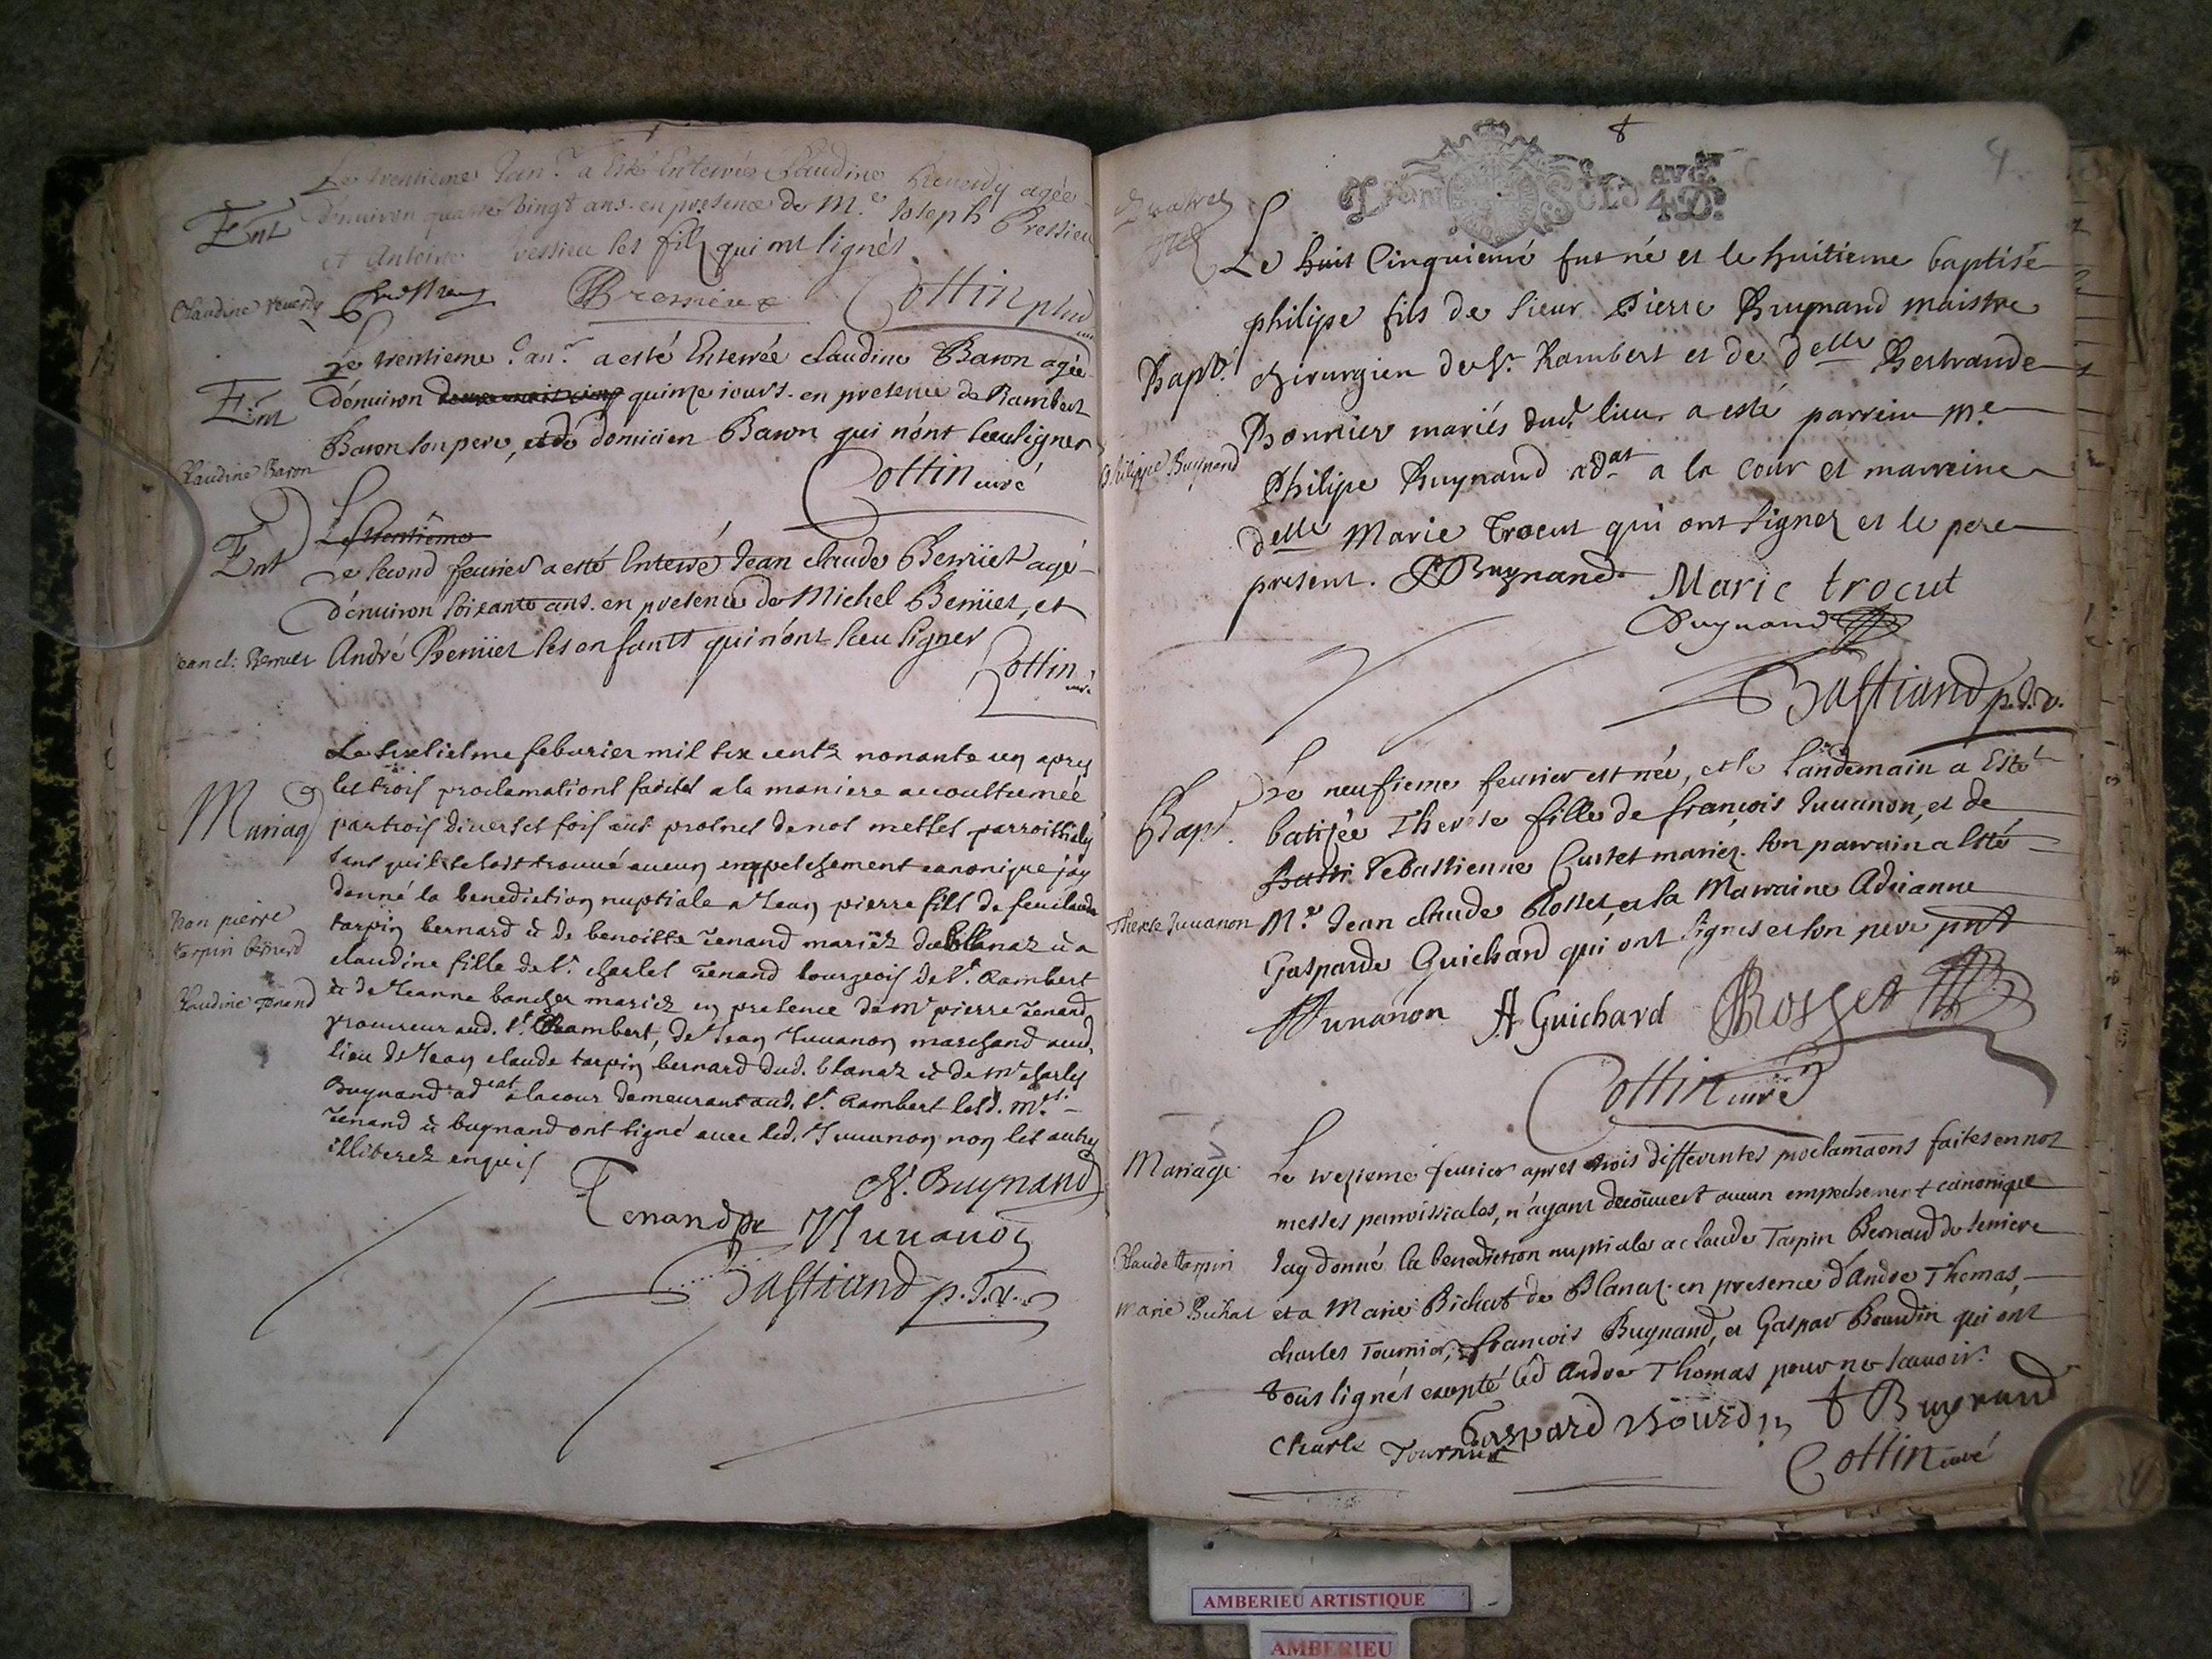 Le trentieme Janr. a Esté Enterrée Claudine Reverdy agée
Ent
d'enuiron quatre vingt ans. en presence de M.e Joseph Bressieu
et Antoine Bressieu ses fils qui ont signés
Claudine reuerdy
Bressieux Cottin
Le trentieme Janr. a esté Enterrée claudine Baron agée
Ent
d'enuiron quinze iours. en presence de Rambert
Baron son pere, et de domicien Baron qui n'ont sceu signer
Claudine Baron
Cottin curé
Le trentieme
Ent
Le second feurier a esté Enterré Jean claude Berniet agé
d'enuiron soixante ans. en presence de Michel Berniet, et
Jean cl: Berniet
André Berniet ses enfants qui n'ont sceu signer
Cottin curé
Le sixliesme feburier mil six centz nonante un apres
les trois proclamations faictes a la maniere accoustumée
Mariag
par trois diuerses fois aux prosnes de nos messes parroissiales
sans qu'il se soit trouué aucun empeschement canonique j'ay
donné la benediction nuptiale a Jean pierre fils de feu claude
Jean pierre
tarpin bernard
tarpin bernard & de benoitte Tenand mariéz de blanaz & a
claudine fille de Sr. charles Tenand bourgeois de St. Rambert
Claudine Tenand
& de Jeanne mariez en presence de Mr pierre Tenand
procureur aud. St. Rambert, de Jean Juuanon marchand aud.
lieu de Jean claude tarpin bernard dud. blanaz & de Mr charles
Buynand adcat a la cour demeurant aud. St. Rambert lesd. Mrs.
Tenand & buynand ont signé auec led. Juuanon non les autres
illiterez enquis
Ch. Buynand
Tenand pr Juuanon
Bastiand p.S.v.
4
AVG.
4 D.
Le huit Cinquiemé fut né et le huitieme baptisé
philipe fils de sieur Pierre Buynand maistre
Bapt.
chirurgien de St. Rambert et de delle Bertrande
Bonnier mariés dud. lieu a esté parrein Me
Philippe Buynand
Philipe Buynand adat a la cour et marreine
delle Marie Trocut qui ont signez et le pere
present. Buynand Marie trocut
Buynand
Bastiand p.S.v.
Le neufieme feurier est née, et le landemain a Esté
Bapt.
batisée Therese fille de francois Juuanon, et de
Sebastienne Curtet mariez. son parrain a Esté
Therese Juuanon
Mr. Jean claude Rosset, et la Marraine Adrianne
Gasparde Guichard qui ont signés et son pere pnt
Juuanon A Guichard Rosset
Cottin curé
Mariage
Le trezieme feurier apres trois differentes proclamaons faites en nos
messes parroissiales, n'ayant decouuert aucun empechement canonique
Claude tarpin
J'ay donné la benediction nuptiale a claude Tarpin Bernard de
Marie Bichat
et a Marie Bichat de Blanaz. en presence d'andre Thomas,
charles Tournier, francois Buynand, et Gaspar Bourdin qui ont
tous signés excepté led Andre Thomas pour ne scauoir.
Gaspard Bourdin f Buynand
Charle Tournier
Cottin curé
AMBERIEU ARTISTIQUE
AMBERIEU